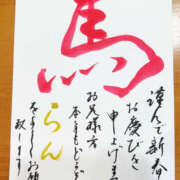 馬
謹んで新春
お慶びを
申し上げま
お兄様方
本年もどうぞ
よろしくお願
致します
らん